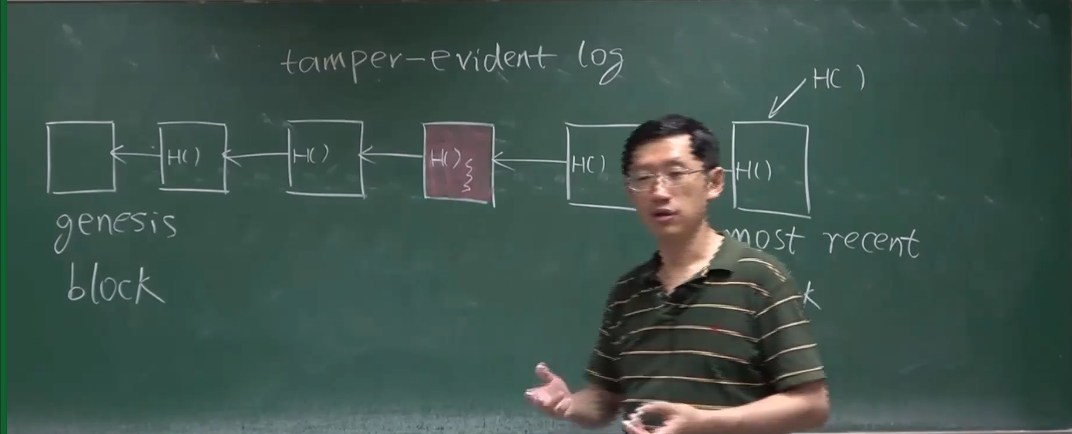 tamper-evident log
H( )
H( )
H( )
H( )
H( )
H( )
genesis
block
most recent